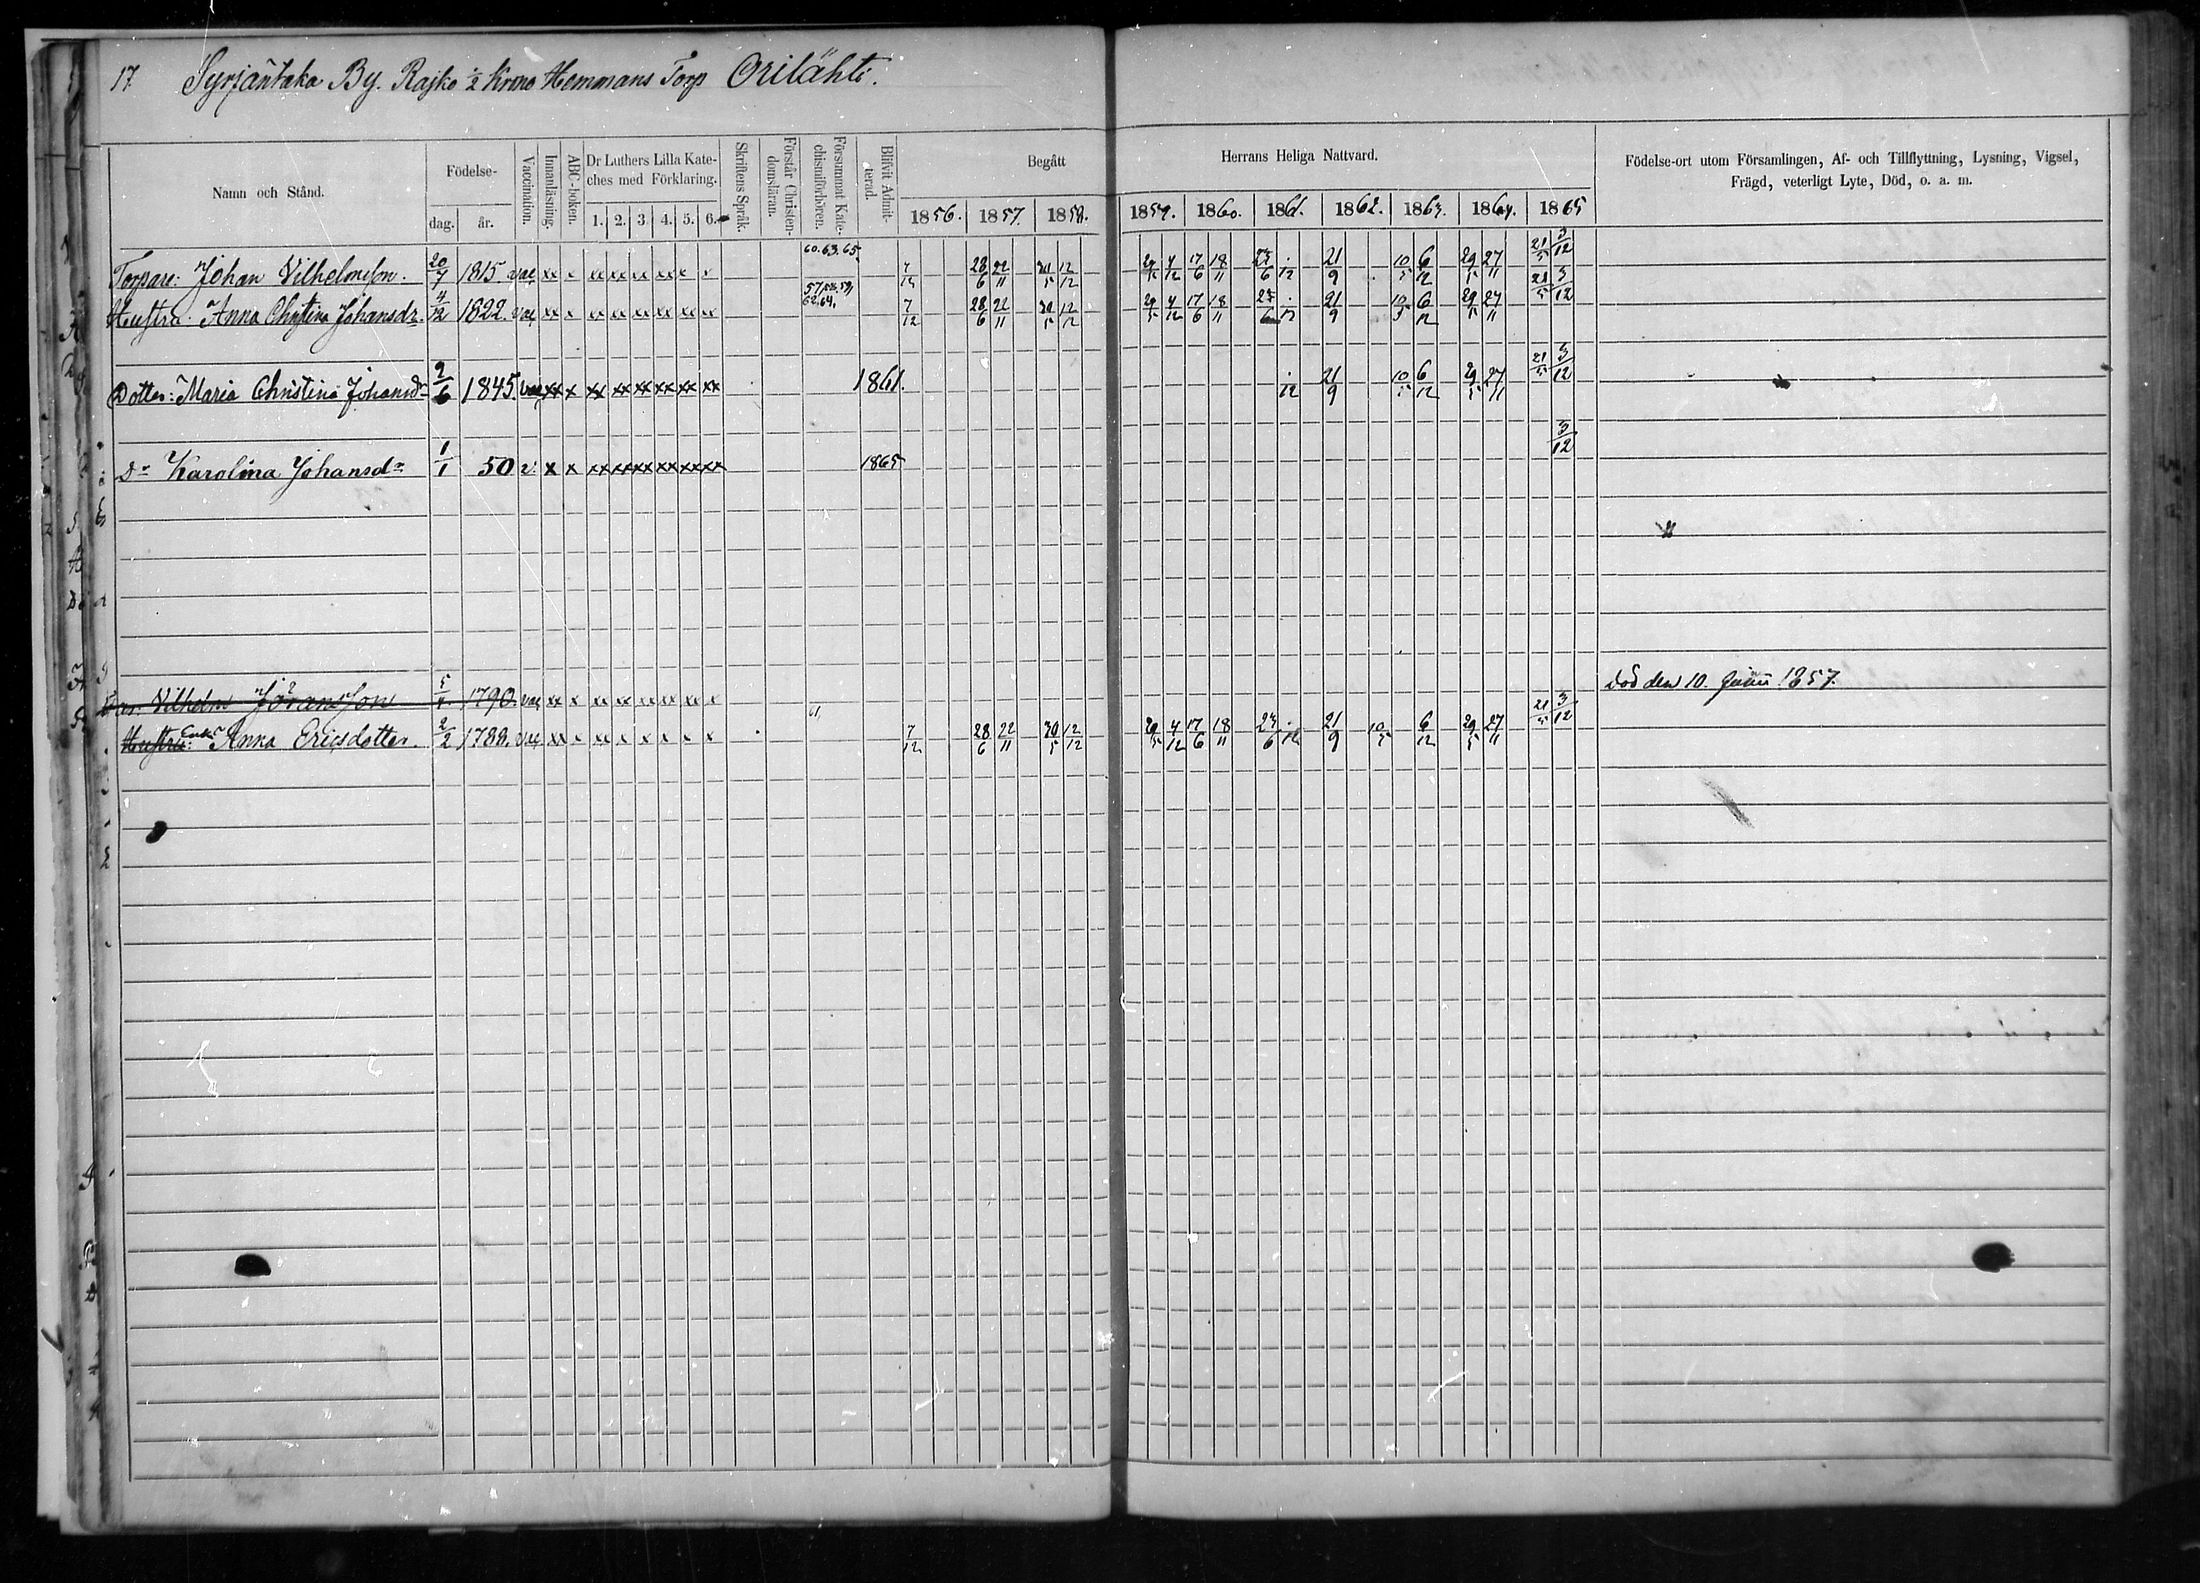 17. Syrjäntaka By. Rajko 1/2 Krono Hemmans Torp Orilähti.
Namn och Stånd. Födelse- dag. år. Vaccination. Innanläsning. ABC-boken. Dr Luthers Lilla Kateches med Förklaring. 1. 2. 3. 4. 5. 6. Skriftens Språk. Förstår Christendomsläran. Försummat Katechismiförhören. Blifvit Admitterad. Begått Herrans Heliga Nattvard. 1856. 1857. 1858. 1859. 1860. 1861. 1862. 1863. 1864. 1865 Födelse-ort utom Församlingen, Af- och Tillflyttning, Lysning, Vigsel, Frägd, veterligt Lyte, Död, o. a. m.
Torpare: Johan Vilhelmsson. 20/7 1815. vac xx x xx xx xx xx xx x 60.63.65. 7/12 28/6 22/11 30/5 12/12 29/5 4/12 17/6 18/11 23/6 ./12 21/9 10/5 6/12 29/5 27/11 21/5 3/12
Hustru: Anna Christina Johansdr. 4/12 1822. vac xx x xx xx xx xx xx xx 62.64. 7/12 28/6 22/11 30/5 12/12 29/5 4/12 17/6 18/11 23/6 ./12 21/9 10/5 6/12 29/5 27/11 21/5 3/12
Dotter: Maria Christina Johansdr 2/6 1845. vac xx x xx xx xx xx xx xx 1861. ./12 21/9 10/5 6/12 29/5 27/11 21/5 3/12
Do Karolina Johansdr 1/1 50 v. x x xx xx xx xx xx xx 1865 3/12
Vilhelm Johansson 1790. vac xx x xx xx xx xx xx x Död den 10. 1857.
Hustru: Enka Anna Ericsdotter. 2/2 1788. vac xx x xx x x x x x 61, 7/12 28/6 22/11 30/5 12/12 29/5 4/12 17/6 18/11 23/6 ./12 21/9 10/5 6/12 29/5 27/11 21/5 3/12